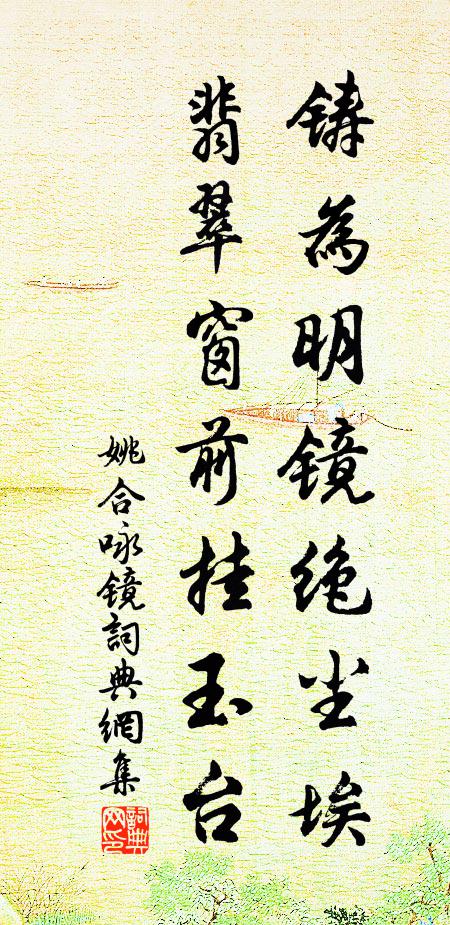 铸为明镜绝尘埃
翡翠窗前挂玉台
姚合咏镜詞典網集
詞典网印